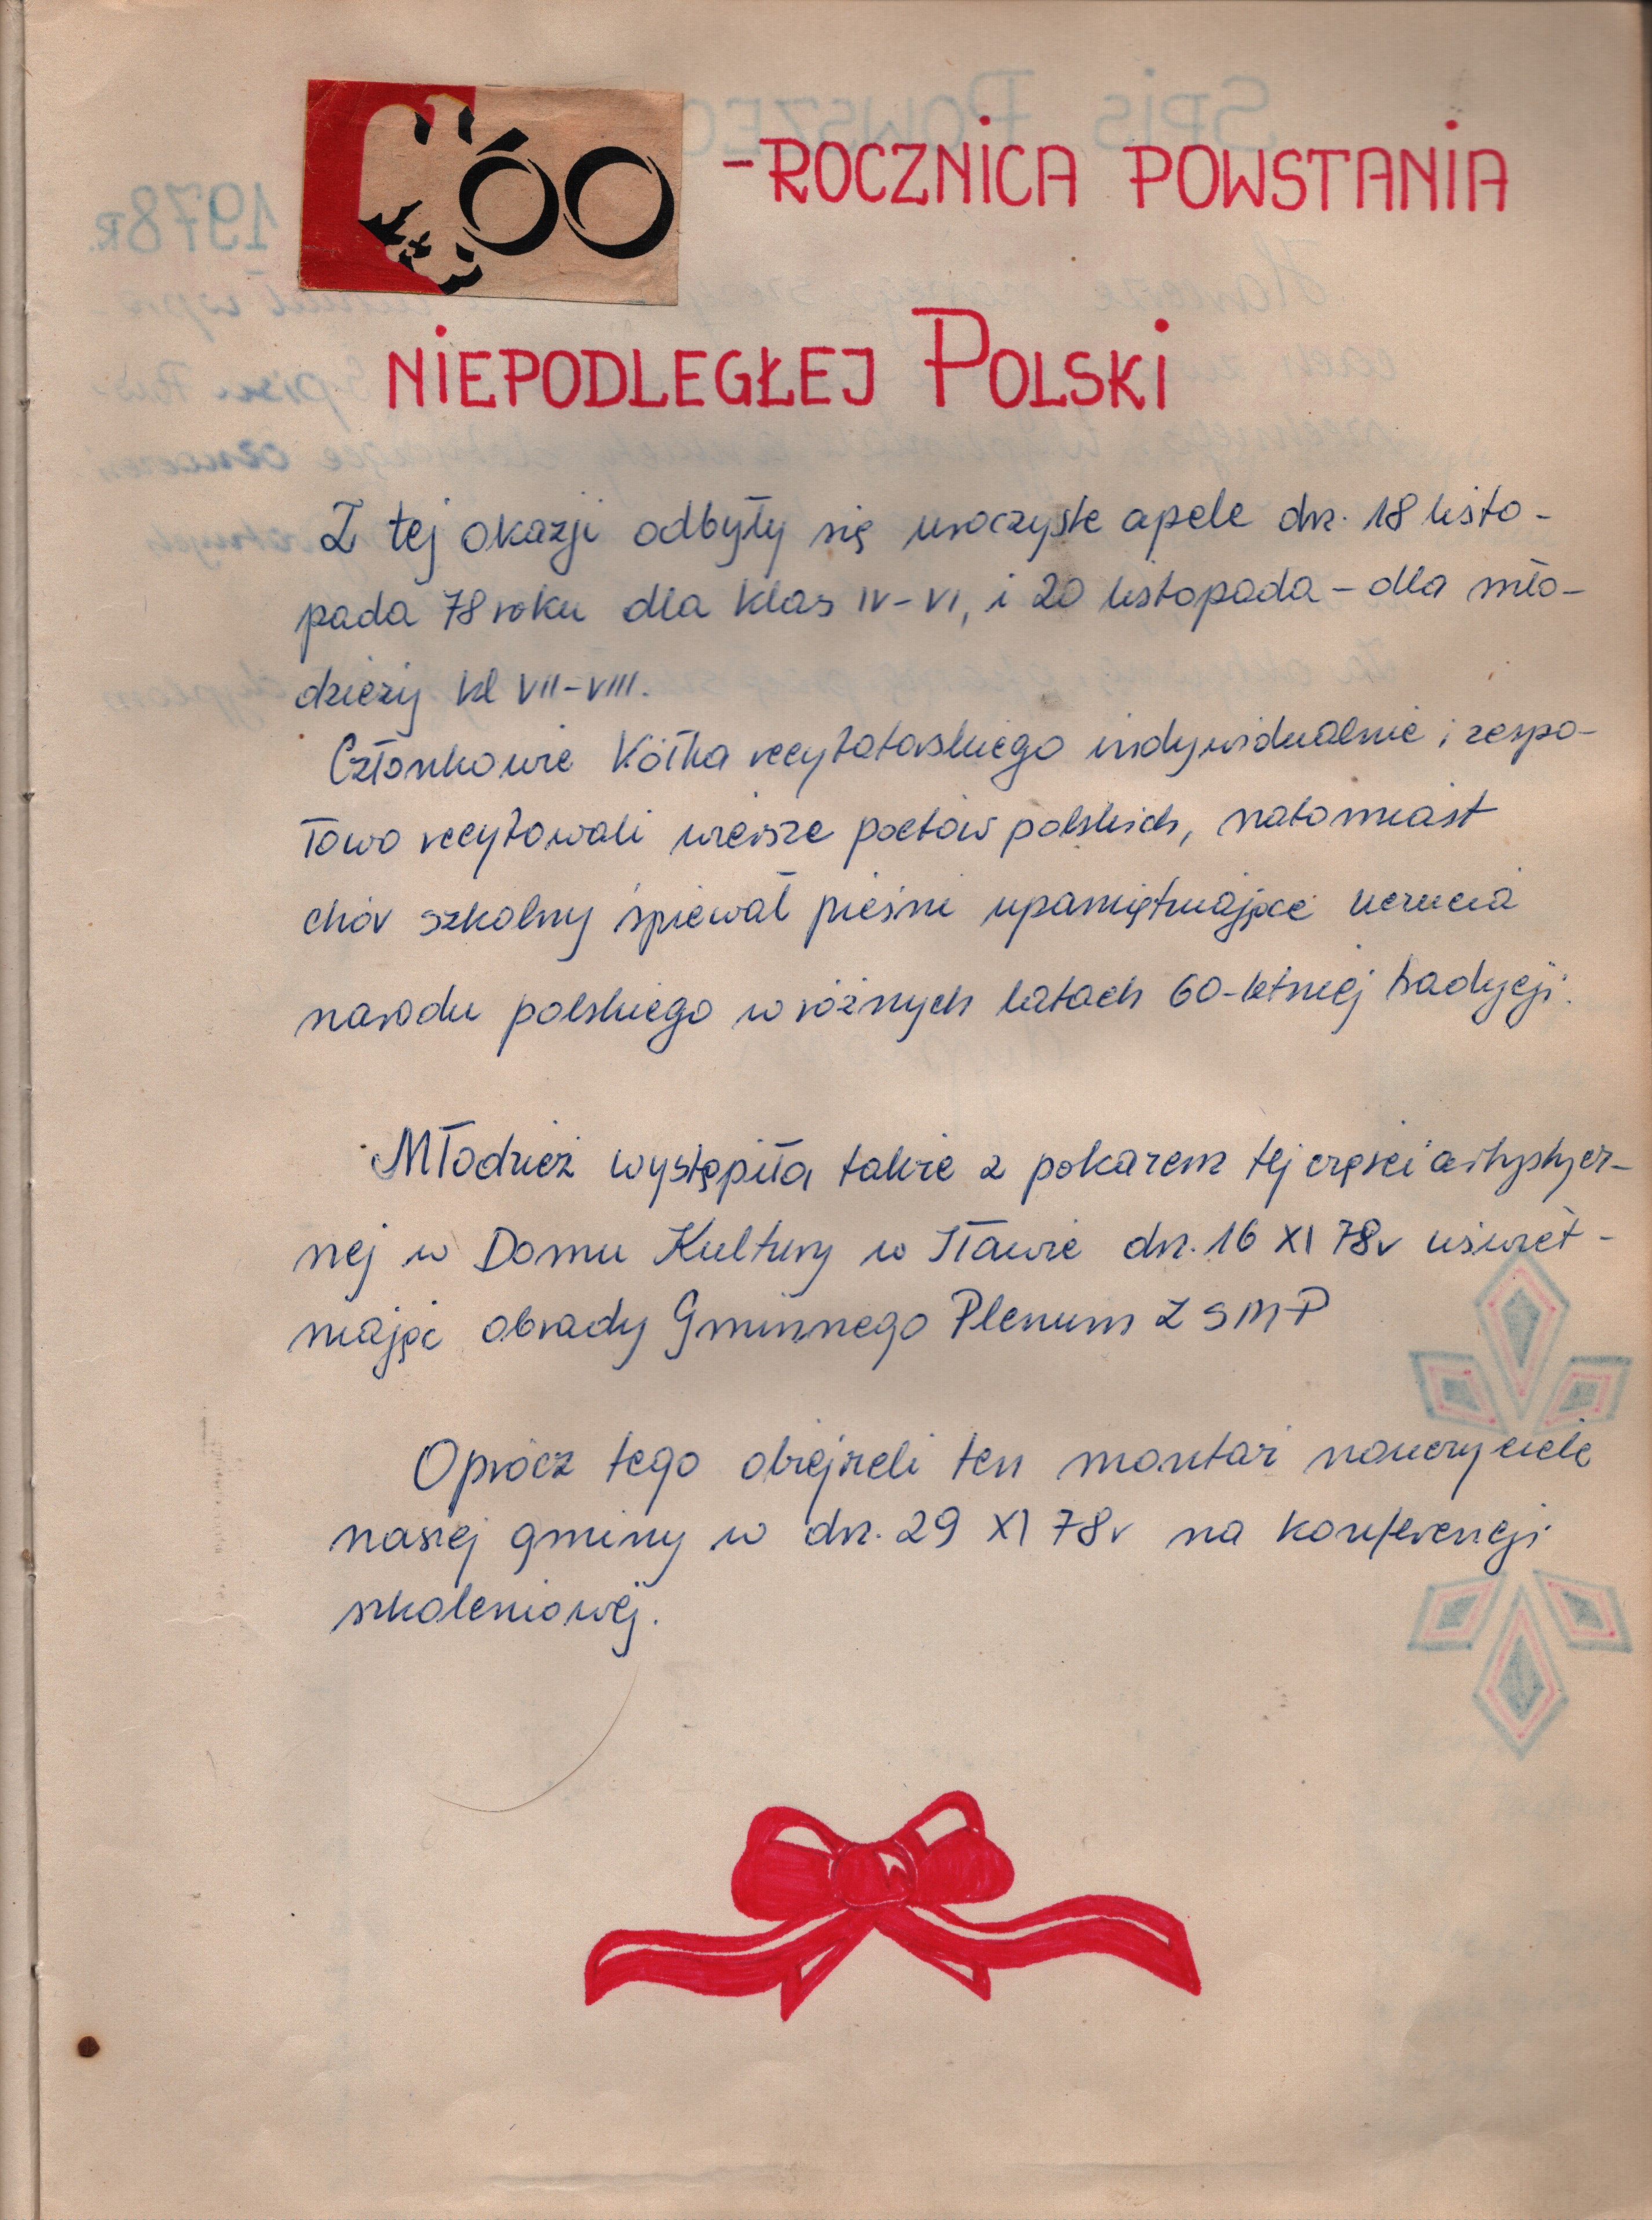 60 -ROCZNICA POWSTANIA
NIEPODLEGŁEJ POLSKI
Z tej okazji odbyły się uroczyste apele dn. 18 listo-
pada 78 roku dla klas IV-VI, i 20 listopada - dla mło-
dzieży kl VII-VIII.
Członkowie Kółka recytatorskiego indywidualnie i zespo-
łowo recytowali wiersze poetów polskich, natomiast
chór szkolny śpiewał pieśni upamiętniające uczucia
narodu polskiego w różnych latach 60-letniej tradycji.
Młodzież wystąpiła także z pokazem tej części artystycz-
nej w Domu Kultury w Iławie dn. 16 XI 78r uświet-
niając obrady Gminnego Plenum ZSMP
Oprócz tego obejrzeli ten montaż nauczyciele
naszej gminy w dn. 29 XI 78r na konferencji
szkoleniowej.